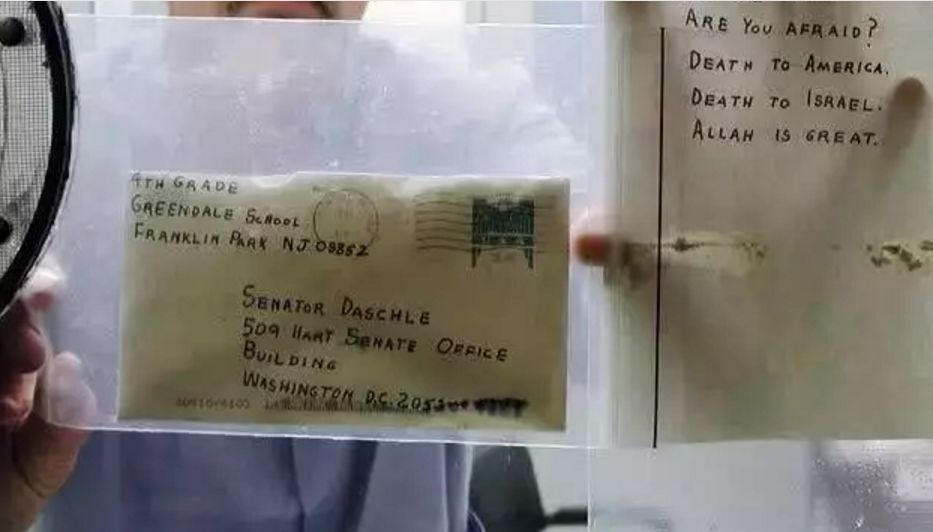 ARE YOU AFRAID?
DEATH TO AMERICA.
DEATH TO ISRAEL.
ALLAH IS GREAT.
4TH GRADE
GREENDALE SCHOOL
FRANKLIN PARK NJ 08852
SENATOR DASCHLE
509 HART SENATE OFFICE
BUILDING
WASHINGTON D.C. 205